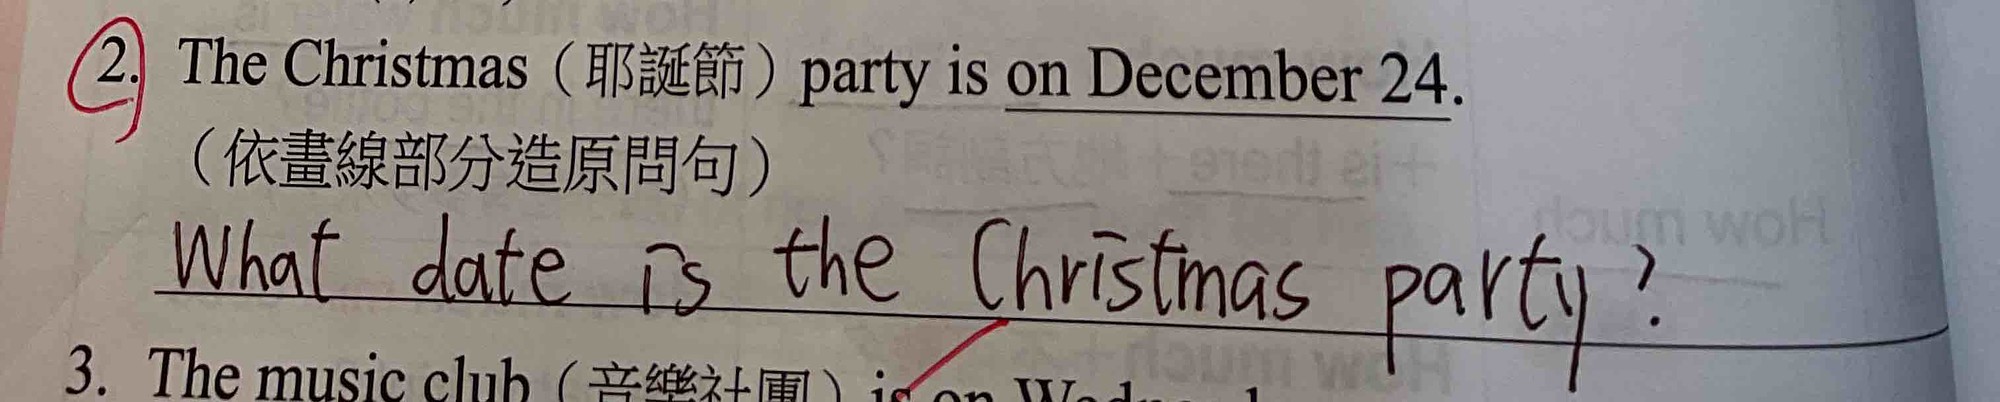 2. The Christmas（耶誕節）party is on December 24.
（依畫線部分造原問句）
What date is the Christmas party?
3. The music club（音樂社團）is on